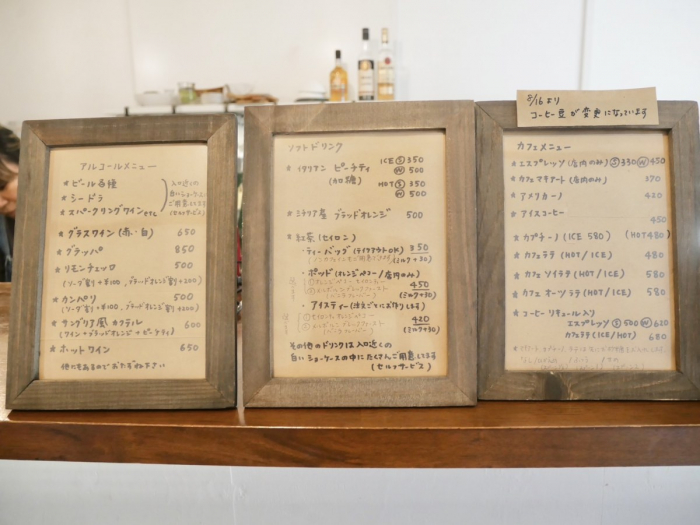 アルコールメニュー
★ ビール各種
★ シードラ
★ スパークリングワインetc
入口近くの
白いショーケースに
ご用意してます
(セルフサービス)
★ グラスワイン (赤・白) 650
★ グラッパ 850
★ リモンチェッロ 500
(ソーダ割+¥100、ブラッドオレンジ割+200)
★ カンパリ 500
(ソーダ割+¥100、ブラッドオレンジ割+200)
★ サングリア風カクテル 600
(ワイン+ブラッドオレンジ+ピーチティ)
★ ホットワイン 650
他にもあるのでおたずね下さい
ソフトドリンク
★ イタリアン ピーチティ ICE Ⓢ 350
(加糖) Ⓦ 500
HOT Ⓢ 350
Ⓦ 500
★ シチリア産 ブラッドオレンジ 500
★ 紅茶 (セイロン)
・ティーバッグ (テイクアウトOK) 350
(ミルク+30)
・ポット (オレンジペコー / 店内のみ)
450
(ミルク+30)
・アイスティー (注文ごとにお作りします)
420
(ミルク+30)
その他のドリンクは入口近くの
白いショーケースの中にたくさんご用意してます
(セルフサービス)
5/16より
コーヒー豆が変更になっています
カフェメニュー
★ エスプレッソ (店内のみ) Ⓢ 330 Ⓦ 450
★ カフェマキアート (店内のみ) 370
★ アメリカーノ 420
★ アイスコーヒー 450
★ カプチーノ (ICE 580) (HOT 480)
★ カフェラテ (HOT / ICE) 580
★ カフェ ソイラテ (HOT / ICE) 580
★ カフェ オーツラテ (HOT / ICE) 580
★ コーヒーリキュール入り
エスプレッソ Ⓢ 500 Ⓦ 620
カフェラテ (ICE / HOT) 680